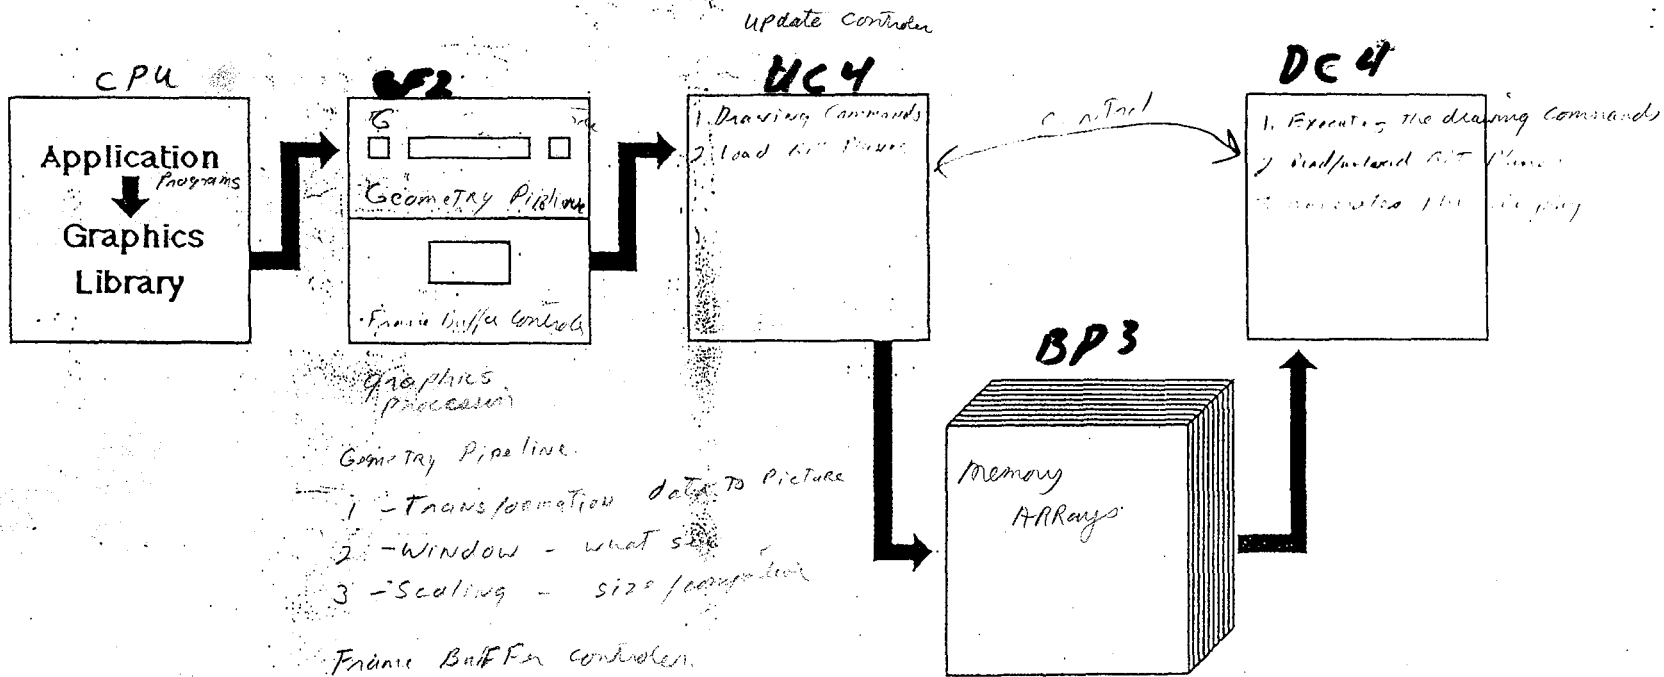 UPdate Controler
CPU
GF2
UC4
DC4
Application
Programs
Graphics
Library
G
Geometry Pipline
Frame Buffer Controler
1. Drawing Commands
2. Load BIT Planes
Control
1. Executing The drawing Commands
2 BIT Planes
BP3
Memory
ARRays
graphics
Processor
Geometry Pipeline
1 - Transformation data To Picture
2 - Window - what see
3 - Scaling - size /
Frame Buffer Controler